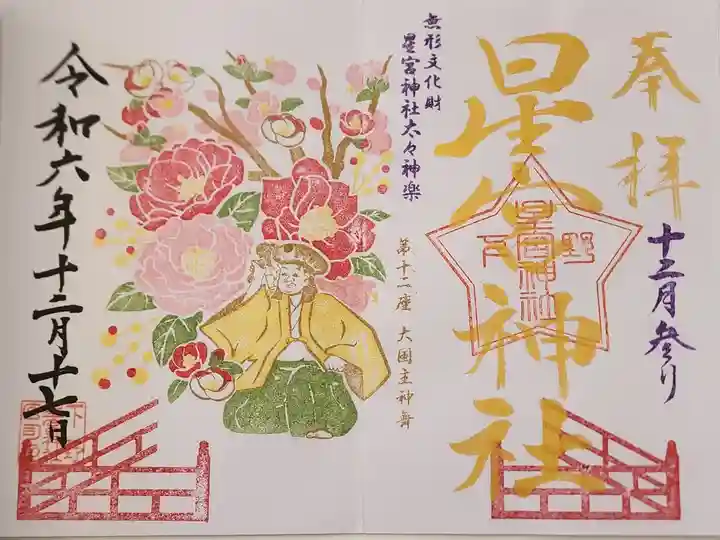 奉拝
十二月参り
星宮神社
下野
星宮神社
無形文化財
星宮神社太々神楽
第十一座 大国主神舞
令和六年十二月十七日